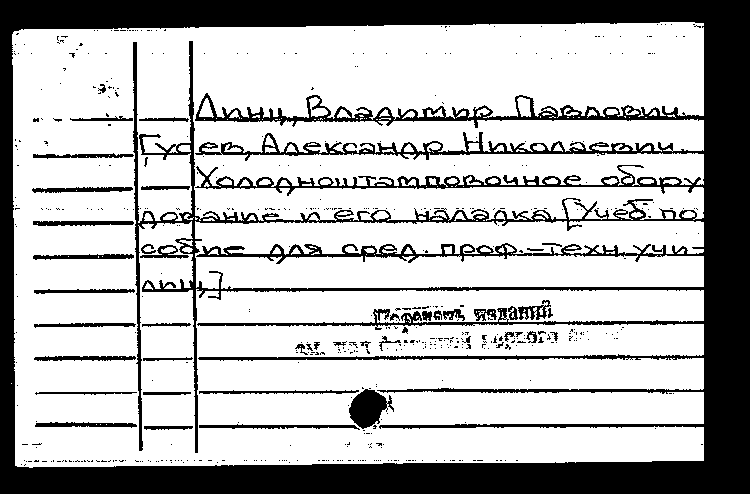 Линц, Владимир Павлович.
Гусев, Александр Николаевич.
Холодноштамповочное обору
дование и его наладка. [Учеб. по
собие для сред. проф.-техн. учи-
лищ]
Перечень изданий
см. под фамилией первого